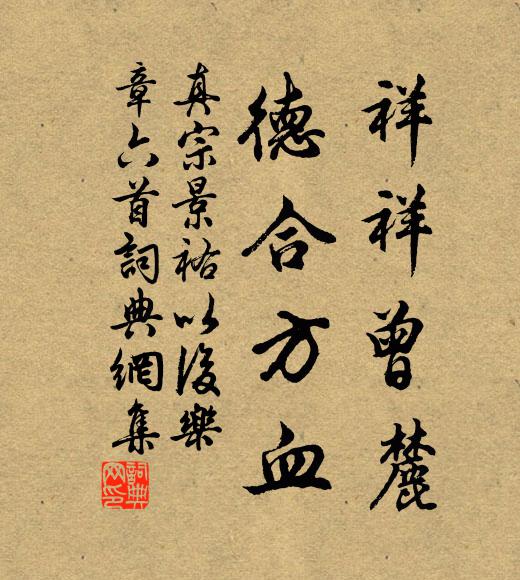 祥祥曾麓
德合方血
真宗景祐以後樂
章六首詞典網集
詞典網印